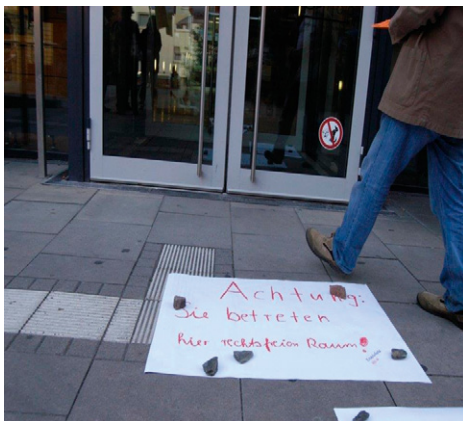 Achtung:
Sie betreten
hier rechtsfreien Raum!